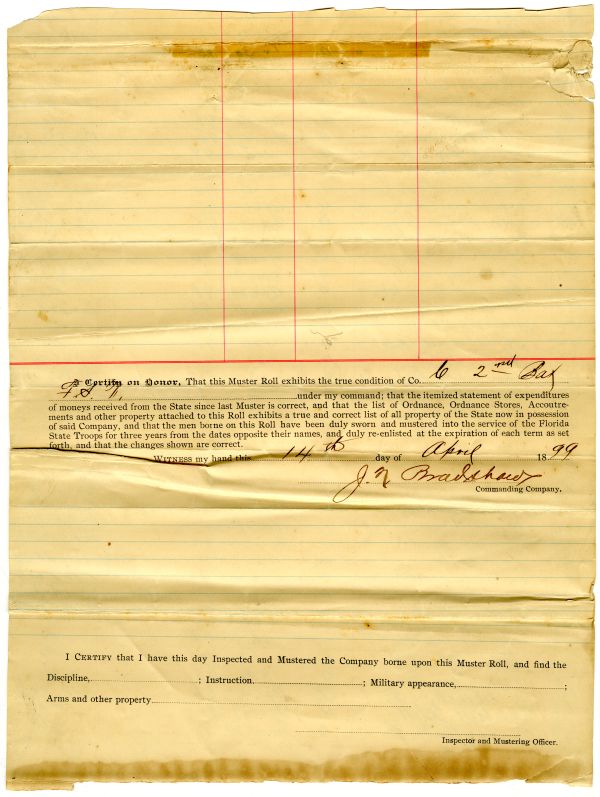 I Certify on Honor, That this Muster Roll exhibits the true condition of Co. C 2nd Bat
F. S. T. under my command; that the itemized statement of expenditures
of moneys received from the State since last Muster is correct, and that the list of Ordnance, Ordnance Stores, Accoutre-
ments and other property attached to this Roll exhibits a true and correct list of all property of the State now in possession
of said Company, and that the men borne on this Roll have been duly sworn and mustered into the service of the Florida
State Troops for three years from the dates opposite their names, and duly re-enlisted at the expiration of each term as set
forth, and that the changes shown are correct.
WITNESS my hand this 14th day of April 1899
J. N. Bradshaw
Commanding Company.
I CERTIFY that I have this day Inspected and Mustered the Company borne upon this Muster Roll, and find the
Discipline, ; Instruction ; Military appearance, ;
Arms and other property
Inspector and Mustering Officer.